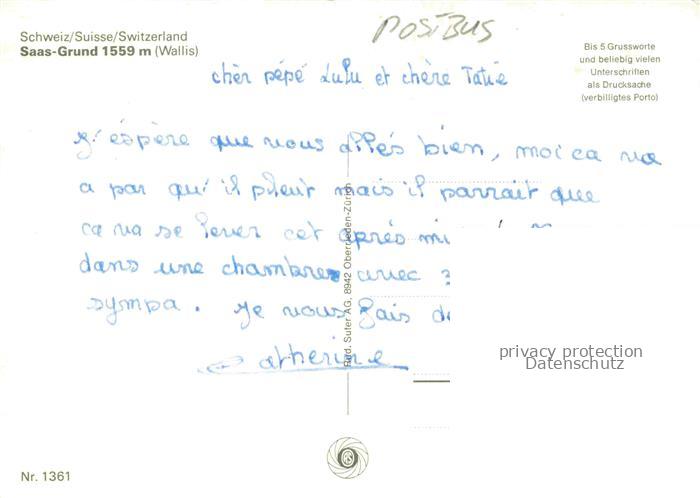 POSTBUS
Schweiz/Suisse/Switzerland
Saas-Grund 1559 m (Wallis)
Bis 5 Grussworte
und beliebig vielen
Unterschriften
als Drucksache
(verbilligtes Porto)
chèr pépé Lulu et chère Tatie
J'éspère que vous allés bien, moi ca va
a par qu'il pleut mais il parrait que
ca va se lever cet après mi
dans une chambre avec 3
sympa. Je vous fais de
Catherine
Red. Suter AG, 8942 Oberrieden-Zürich
privacy protection
Datenschutz
Nr. 1361